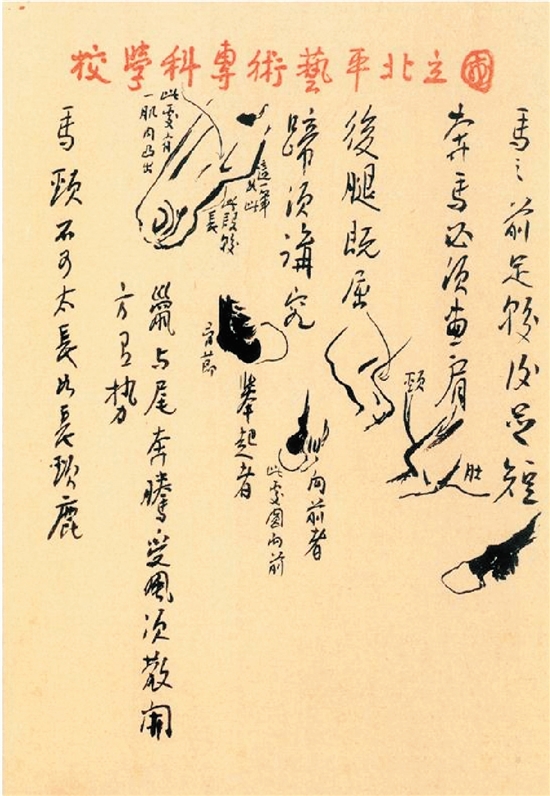 國立北平藝術專科學校
馬之前足較後足短
奔馬必須畫肩
頸
肚
後腿既屈
蹄須講究
向前者
此處圓向前
舉起者
有節
這一筆
如此
此段較
長
此處有
一肌肉凸出
鬣與尾奔騰受風須散開
方有勢
馬頸不可太長如長頸鹿